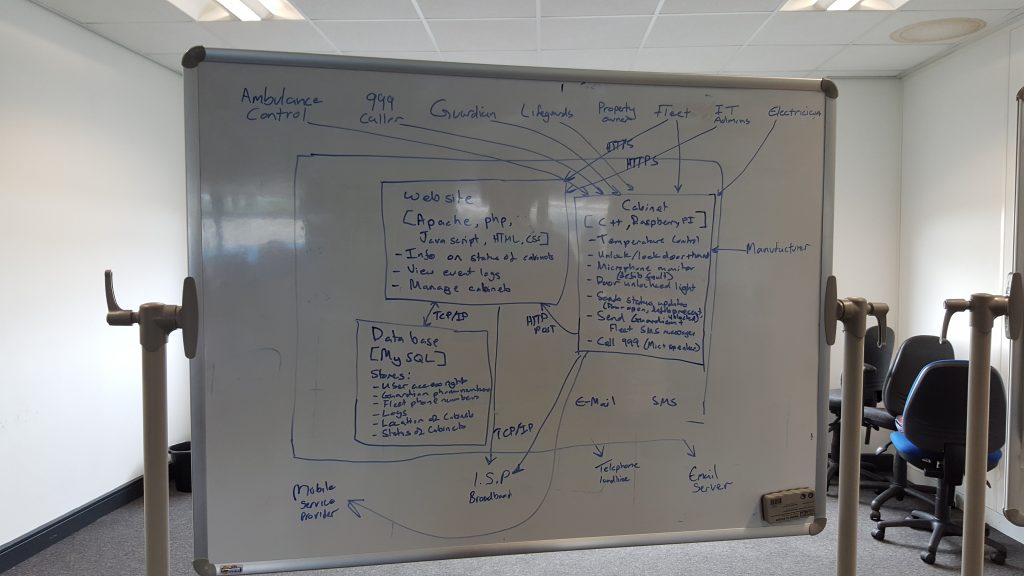 Ambulance
Control
999
Caller
Guardian
Lifegards
Property
owner
Fleet
I.T
Admins
Electrician
HTTPS
HTTPS
Website
[Apache, php,
Javascript, HTML, CSS]
- Info on status of cabinets
- View event logs
- Manage cabinets
Cabinet
[C++, Raspberry PI]
- Temperature Control
- Unlock/lock door
- Microphone monitor
(Defib fault)
- Door unlocked light
- Sends status updates
(Door open,
- Send Guardian +
Fleet SMS messages
- Call 999 (Mic + speaker)
Manufacturer
TCP/IP
HTTP
POST
Database
[MySQL]
Stores:
- User access right
- Guardian phone numbers
- Fleet phone numbers
- Logs
- Location of Cabinets
- Status of Cabinets
E-Mail
SMS
TCP/IP
I.S.P
Broadband
Telephone
landline
Email
Server
Mobile
Service
Provider